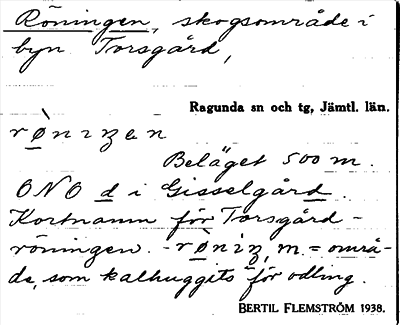 Röningen, skogsområde i
byn Torsgård,
Ragunda sn och tg, Jämtl. län.
rø̀nızen
Beläget 500 m.
ONO d i Gisselgård.
Kortnamn för Torsgård-
röningen. - rø̀nız, m. = områ-
de, som kalhuggits för odling.
BERTIL FLEMSTRÖM 1938.